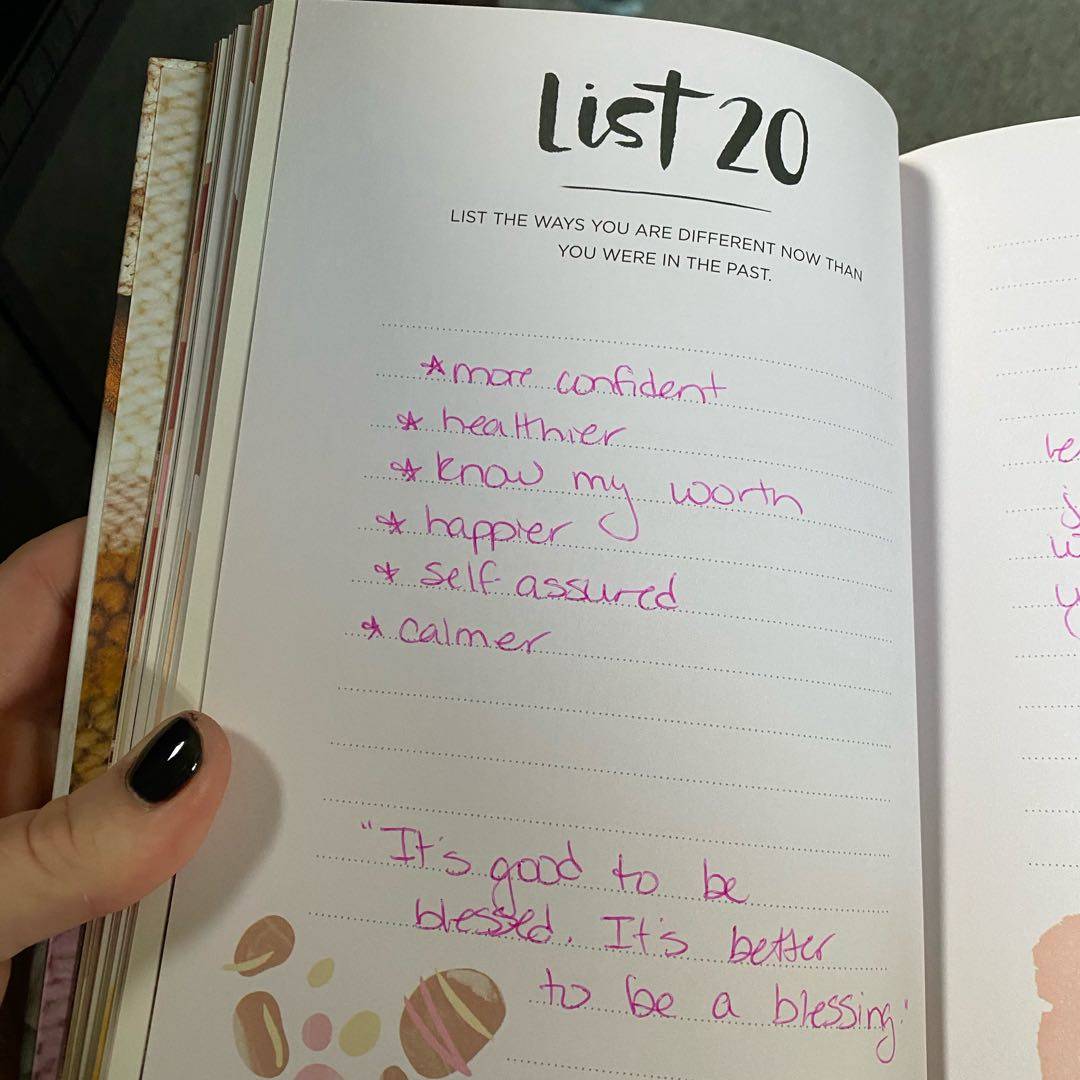 List 20
LIST THE WAYS YOU ARE DIFFERENT NOW THAN
YOU WERE IN THE PAST.
*more confident
* healthier
* know my worth
* happier
* self assured
* calmer
"It's good to be
blessed. It's better
to be a blessing'